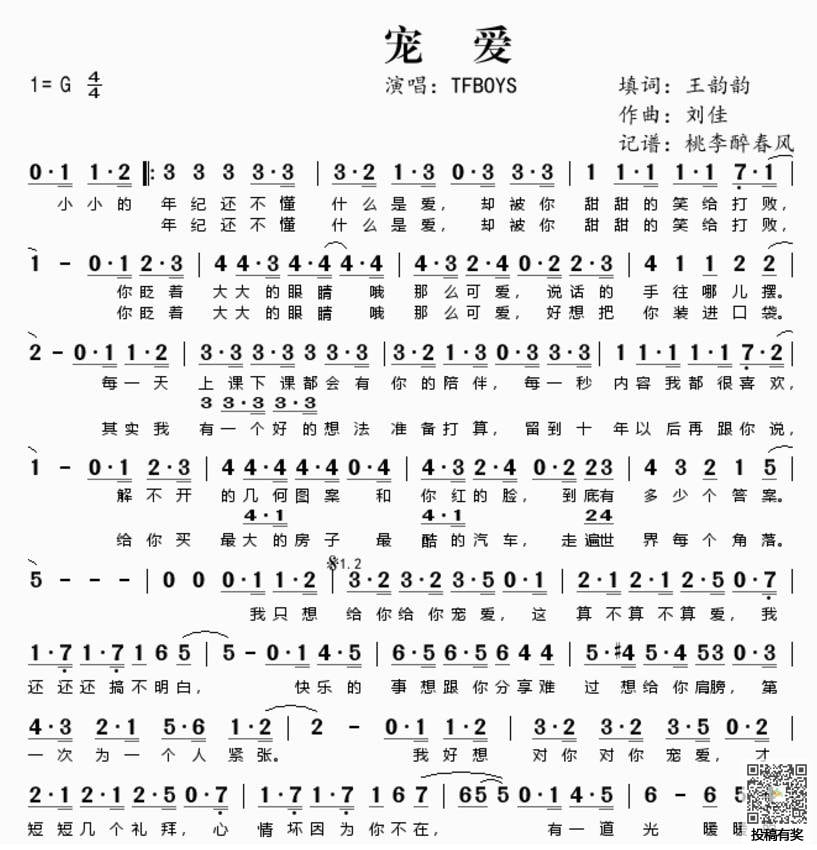 宠 爱
1= G 4/4 演唱：TFBOYS 填词：王韵韵
作曲：刘佳
记谱：桃李醉春风
0·1 1·2 ‖: 3 3 3 3·3 | 3·2 1·3 0·3 3·3 | 1 1·1 1·1 7·1 |
小小的 年纪还不懂 什么是爱，却被你 甜甜的笑给打败，
年纪还不懂 什么是爱，却被你 甜甜的笑给打败，
1 - 0·1 2·3 | 4 4·3 4·4 4·4 | 4·3 2·4 0·2 2·3 | 4 1 1 2 |
你眨着 大大的眼睛 哦 那么可爱，说话的 手往哪儿摆。
你眨着 大大的眼睛 哦 那么可爱，好想把 你装进口袋。
2 - 0·1 1·2 | 3·3 3·3 3·3 3·3 | 3·2 1·3 0·3 3·3 | 1 1·1 1·1 7·2 |
每一天 上课下课都会有 你的陪伴，每一秒 内容我都很喜欢，
3 3·3 3·3
其实我 有一个好的想法 准备打算，留到十 年以后再跟你说，
1 - 0·1 2·3 | 4·4 4·4 4·4 0·4 | 4·3 2·4 0·2 23 | 4 3 2 1 5 |
解不开 的几何图案 和 你红的脸，到底有 多少个答案。
4·1 4·1 24
给你买 最大的房子 最 酷的汽车，走遍世 界每个角落。
5 - - - | 0 0 0·1 1·2 | 𝄋1.2 3·2 3·2 3·5 0·1 | 2·1 2·1 2·5 0·7 |
我只想 给你给你宠爱，这 算不算不算爱，我
1·7 1·7 1 6 5 | 5 - 0·1 4·5 | 6·5 6·5 6 4 4 | 5·#4 5·4 53 0·3 |
还还还搞不明白， 快乐的 事想跟你分享难 过想给你肩膀，第
4·3 2·1 5·6 1·2 | 2 - 0·1 1·2 | 3·2 3·2 3·5 0·2 |
一次为一个人紧张。 我好想 对你对你宠爱，才
2·1 2·1 2·5 0·7 | 1·7 1·7 1 6 7 | 6 5 5 0·1 4·5 | 6 - 6 5
短短几个礼拜，心 情坏因为你不在， 有一道 光 暖暖
投稿有奖